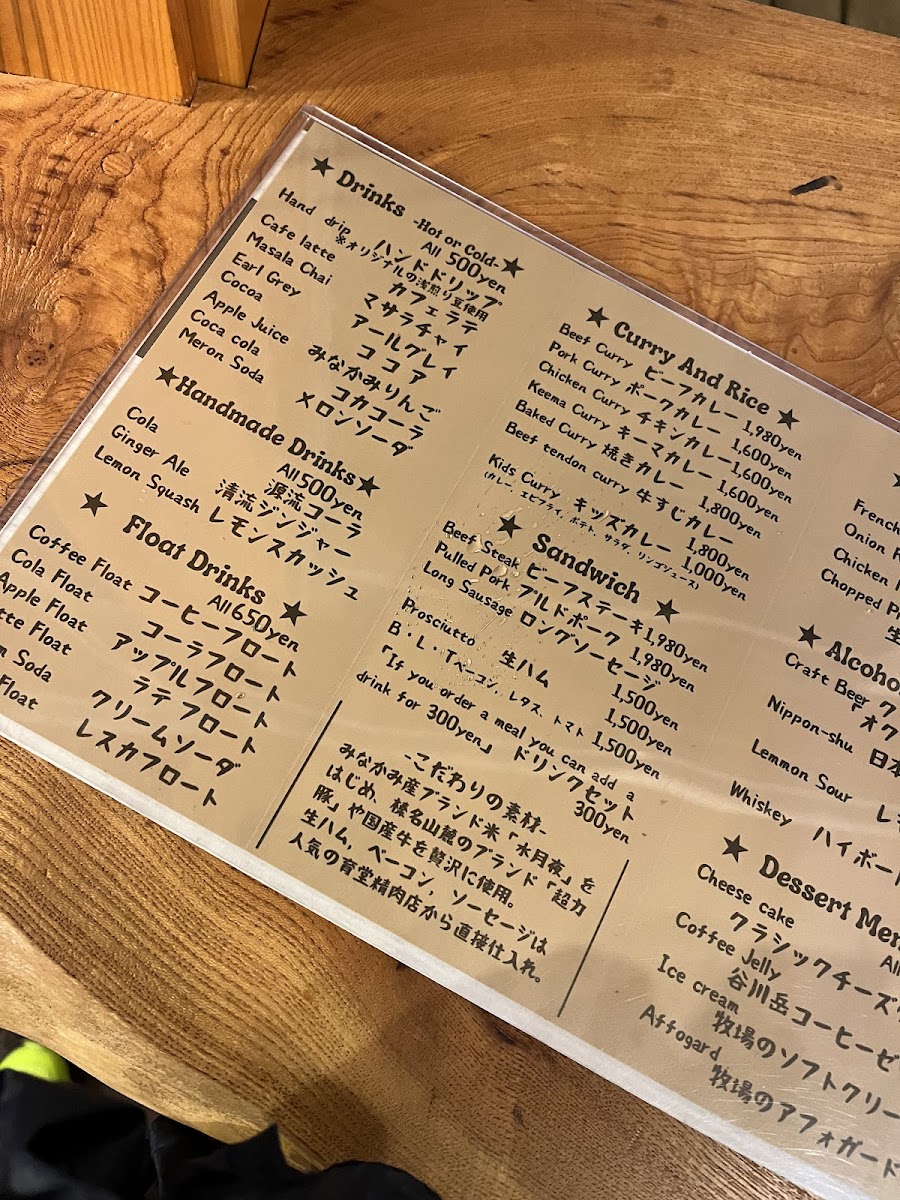 ★ Drinks -Hot or Cold- ★
All 500yen
Hand drip ハンドドリップ
※オリジナルの浅煎り豆使用
Cafe latte カフェラテ
Masala Chai マサラチャイ
Earl Grey アールグレイ
Cocoa ココア
Apple Juice みなかみりんご
Coca cola コカコーラ
Meron Soda メロンソーダ
★Handmade Drinks★
All500yen
Cola 源流コーラ
Ginger Ale 清流ジンジャー
Lemon Squash レモンスカッシュ
★ Float Drinks ★
All650yen
Coffee Float コーヒーフロート
Cola Float コーラフロート
Apple Float アップルフロート
tte Float ラテフロート
Soda クリームソーダ
Float レスカフロート
★ Curry And Rice ★
Beef Curry ビーフカレー 1,980yen
Pork Curry ポークカレー 1,600yen
Chicken Curry チキンカレー1,600yen
Keema Curry キーマカレー 1,600yen
Baked Curry 焼きカレー 1,800yen
Beef tendon curry 牛すじカレー 1,800yen
Kids Curry キッズカレー 1,000yen
(カレー、エビフライ、ポテト、サラダ、リンゴジュース)
★ Sandwich ★
Beef Steak ビーフステーキ1,980yen
Pulled Pork プルドポーク 1,980yen
Long Sausage ロングソーセージ 1,500yen
Prosciutto 生ハム 1,500yen
B・L・Tベーコン、レタス、トマト 1,500yen
「If you order a meal you can add a
drink for 300yen」 ドリンクセット 300yen
-こだわりの素材-
みなかみ産ブランド米「水月夜」を
はじめ、榛名山麓のブランド「超力
豚」や国産牛を贅沢に使用。
生ハム、ベーコン、ソーセージは
人気の育堂精肉店から直接仕入れ。
★
French
Onion
Chicken
Chopped
生
★ Alcoho
Craft Beer ク
「オク
Nippon-shu 日本
Lemmon Sour レ
Whiskey ハイボー
★ Dessert Men
All
Cheese cake
クラシックチーズ
Coffee Jelly
谷川岳コーヒーゼ
Ice cream
牧場のソフトクリー
Affogard
牧場のアフォガード